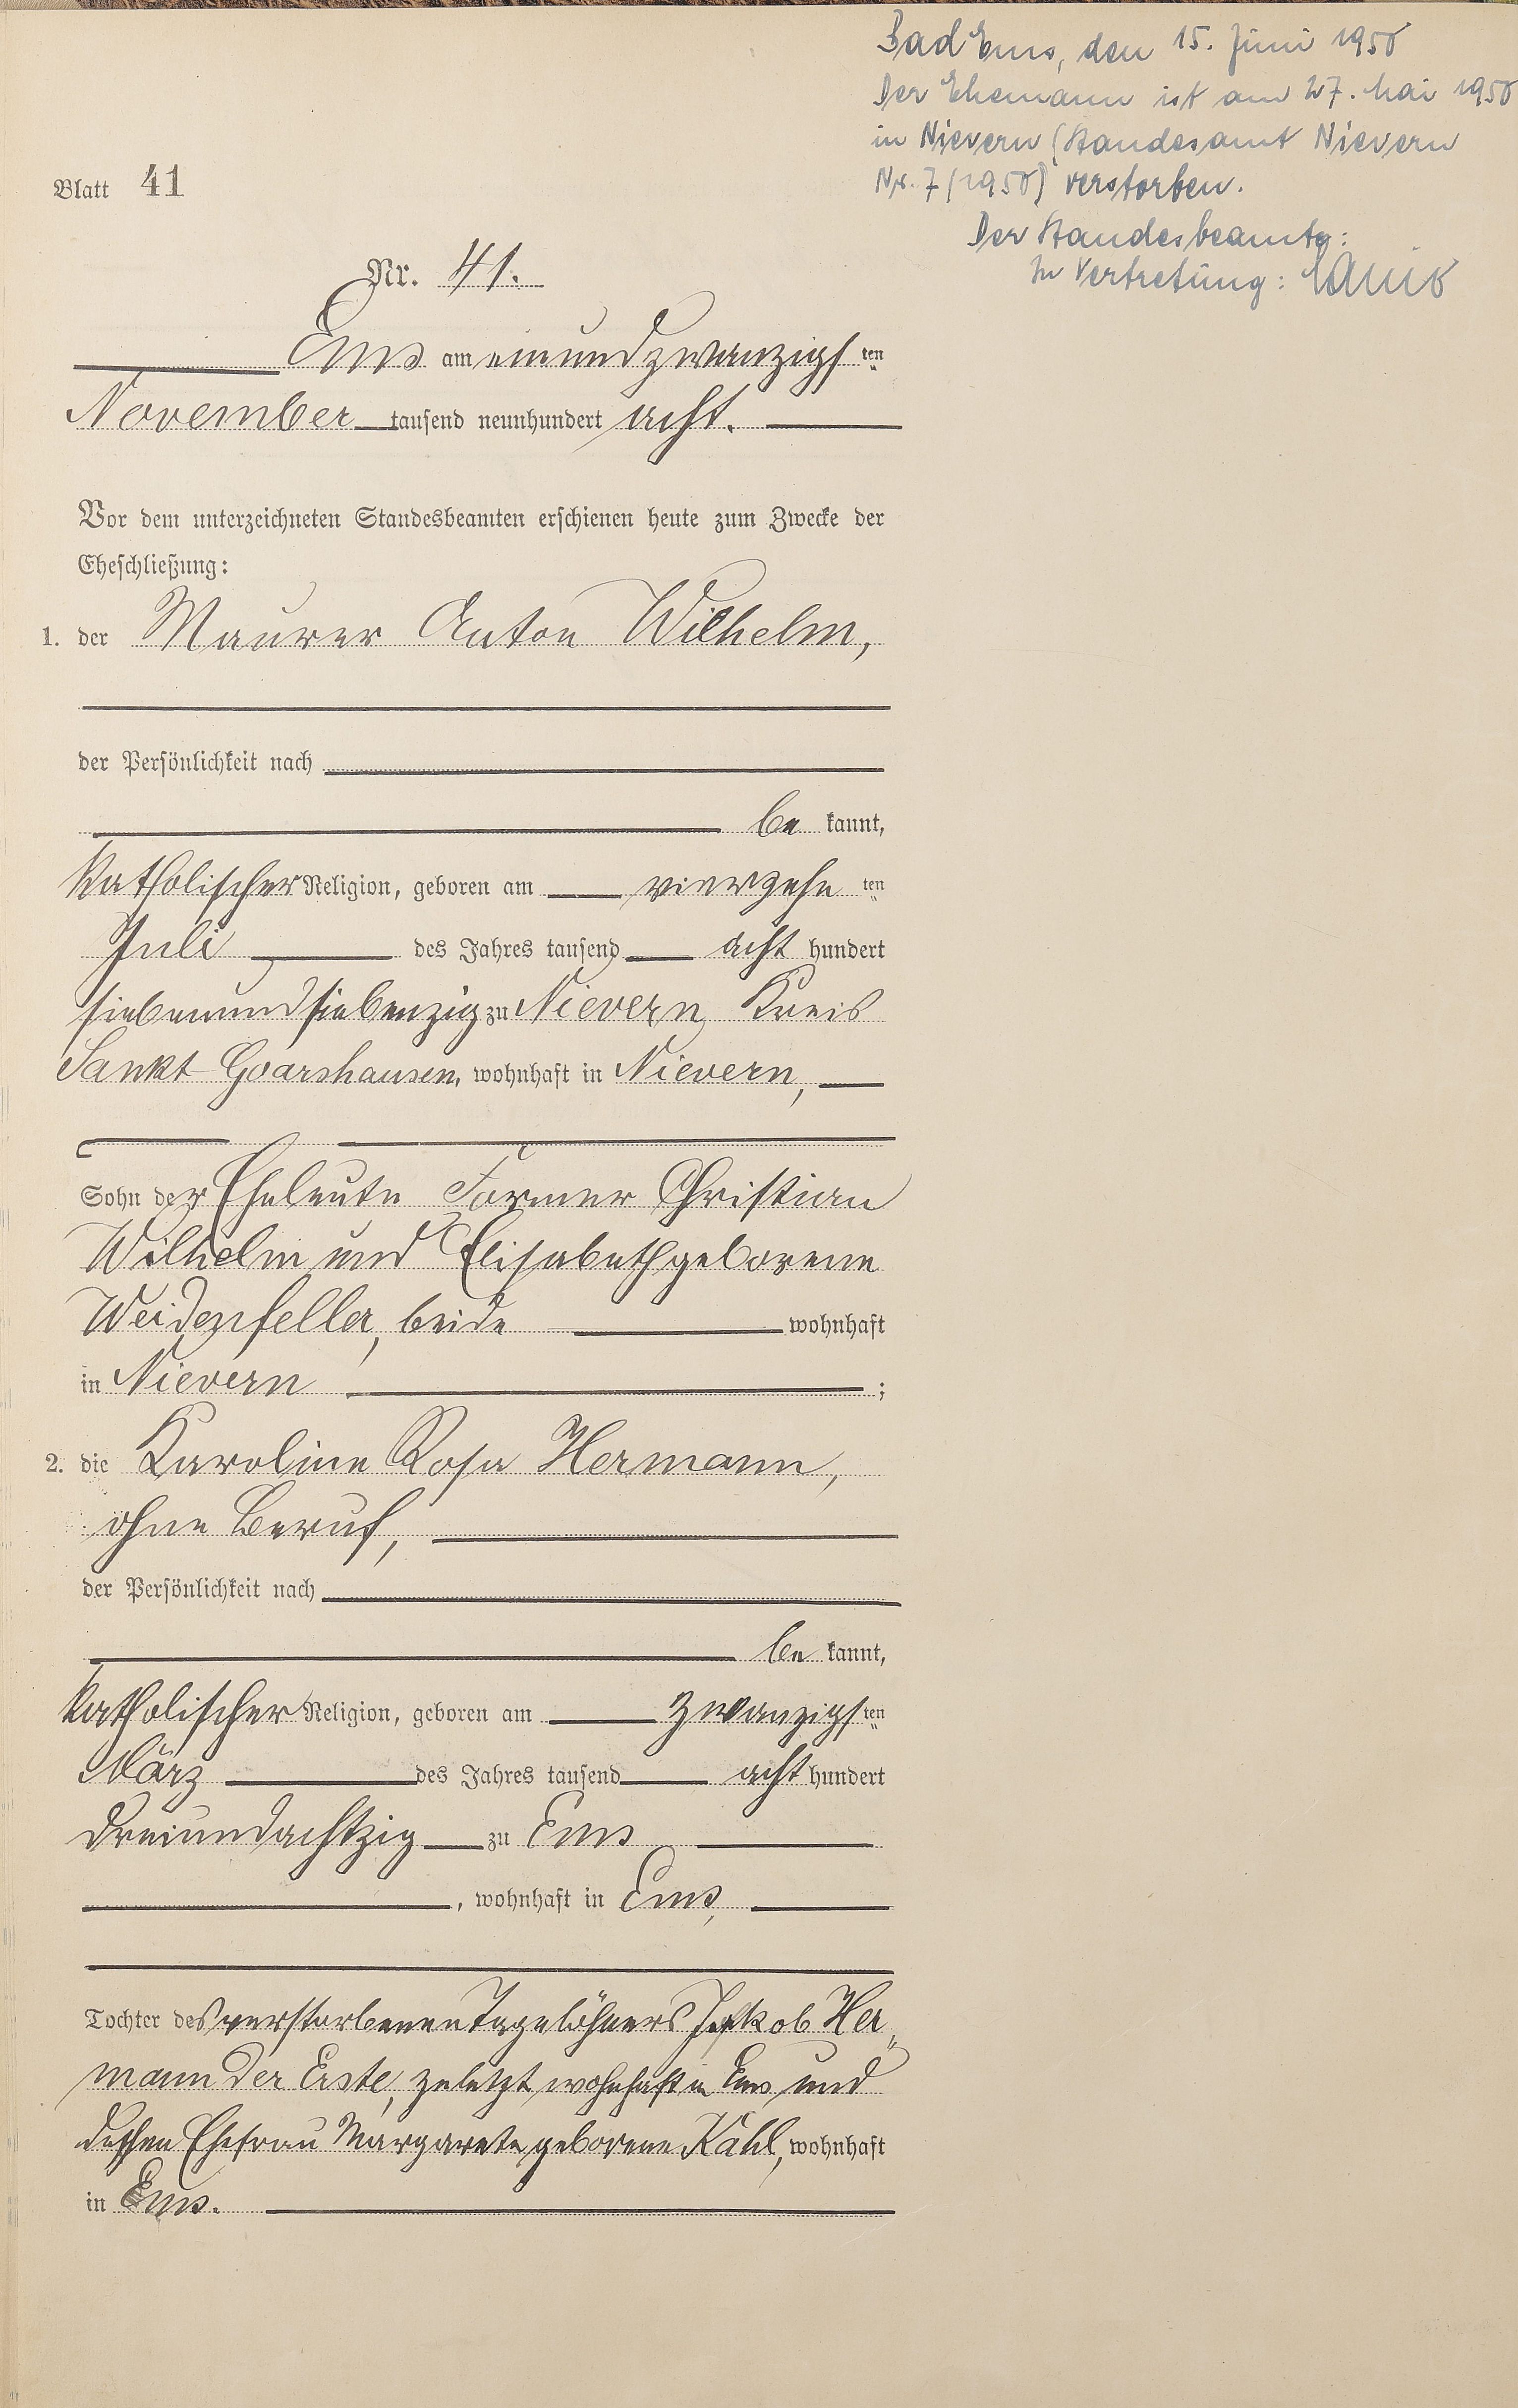 Bad Ems, den 15. Juni 1950
Der Ehemann ist am 27. Mai 1950
in Nievern (Standesamt Nievern
Nr. 7/1950) verstorben.
Der Standesbeamte:
In Vertretung:
Blatt 41
Nr. 41.
Ems am einundzwanzigsten
November tausend neunhundert acht.
Vor dem unterzeichneten Standesbeamten erschienen heute zum Zwecke der
Eheschließung:
1. der Maurer Anton Wilhelm,
der Persönlichkeit nach
be kannt,
katholischer Religion, geboren am vierzehnten
Juli des Jahres tausend acht hundert
siebenundsiebenzig zu Nievern, Kreis
Sankt Goarshausen, wohnhaft in Nievern,
Sohn der Eheleute Former Christian
Wilhelm und Elisabeth geborene
Weidenfeller, beide wohnhaft
in Nievern ;
2. die Karoline Rosa Hermann,
ohne Beruf,
der Persönlichkeit nach
be kannt,
katholischer Religion, geboren am zwanzigsten
März des Jahres tausend acht hundert
dreiundachtzig zu Ems
, wohnhaft in Ems,
Tochter des verstorbenen Tagelöhners Jakob Her„
mann der Erste, zuletzt wohnhaft in Ems und
dessen Ehefrau Margarete geborene Kahl, wohnhaft
in Ems.